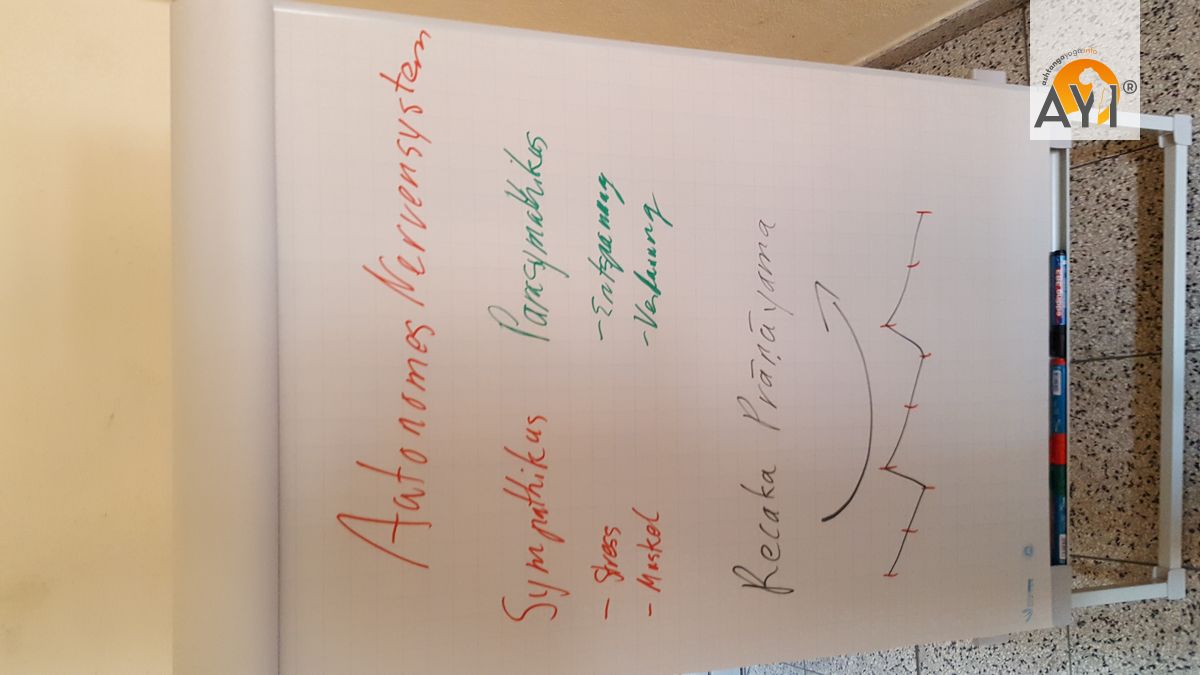 Autonomes Nervensystem
Sympathikus Parasympathikus
- Stress - Entspannung
- Muskel - Verdauung
Recaka Prāṇāyama
ashtangayoga.info
AYI®